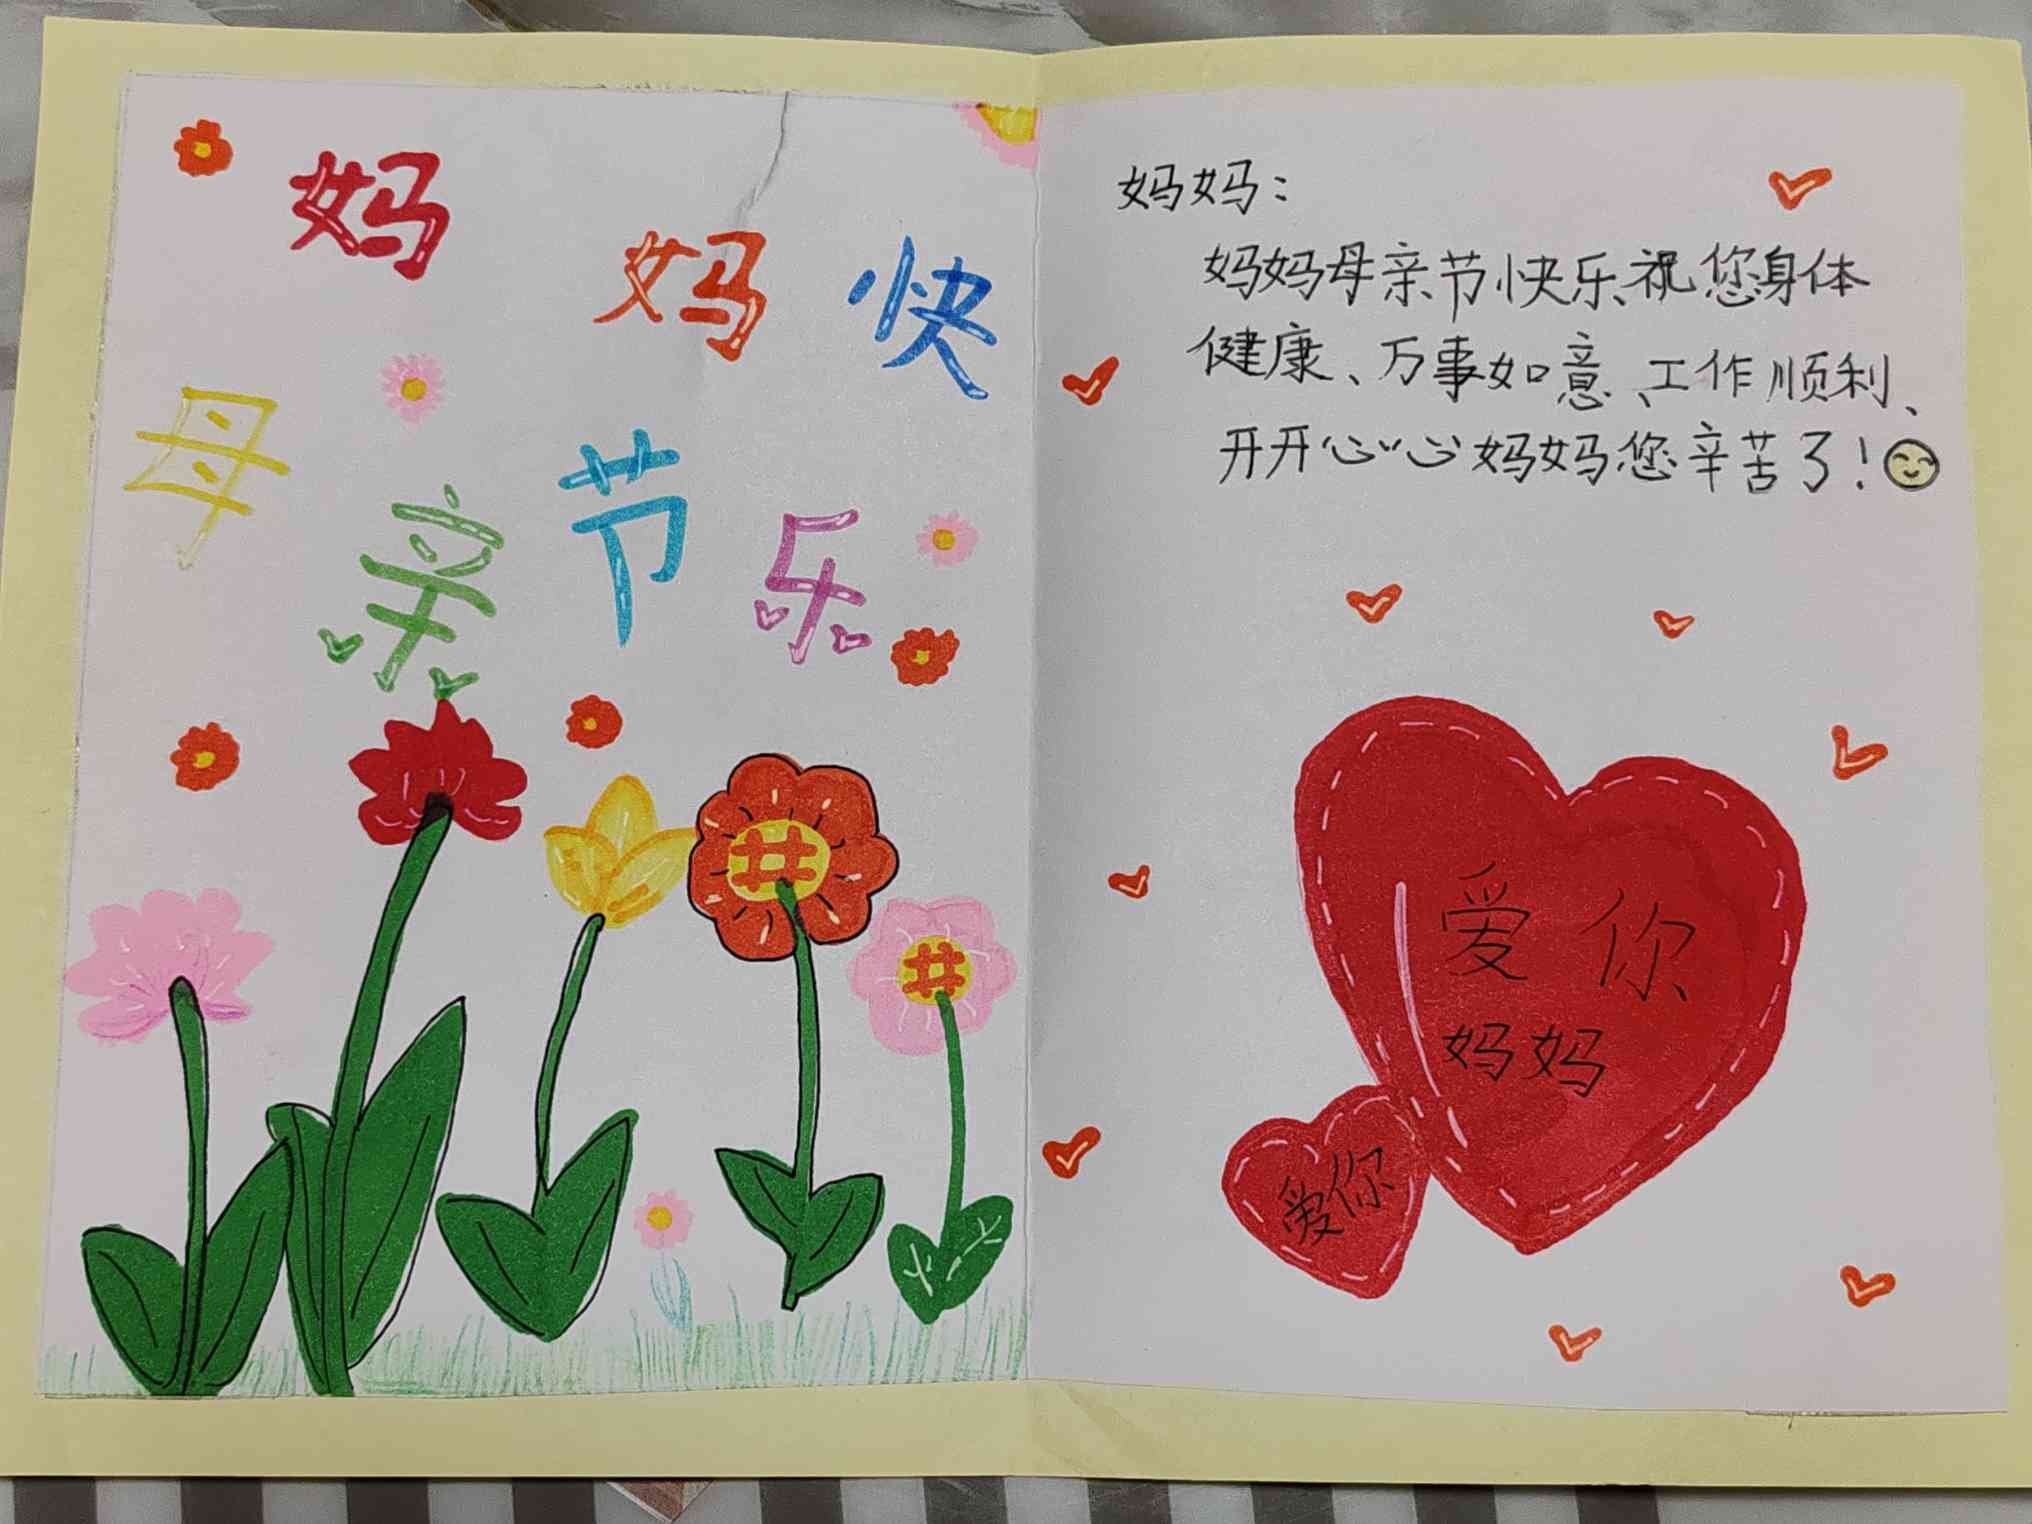 妈妈快
母亲节乐
妈妈：
妈妈母亲节快乐祝您身体
健康、万事如意、工作顺利、
开开心心妈妈您辛苦了！
爱你
妈妈
爱你